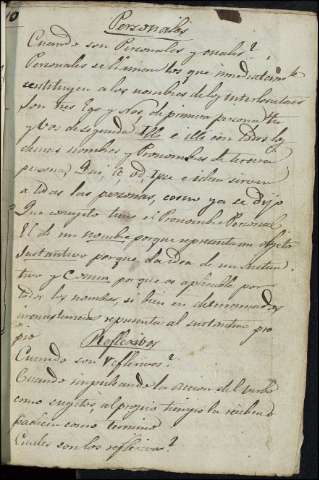 Personales
Cuando son Personales y cuales?
Personales se llaman los que inmediatamte
constituyen a los nombres de los interlocutores
son tres Ego y Nos de primera persona Tu
y Vos de segunda Ille e illi con todos los
demas nombres y Pronombres de tercera
persona, Qui, is, id, ipse e idem sirven
a todas las personas, como ya se dijo
Que concepto tiene el Pronombre Personal
El de un nombre porque representa un objeto
Sustantivo porque da idea de un sustan
tivo y Comun porque es aplicable por
todos los nombres, si bien en determinadas
circunstancias representa al sustantivo pro
pio
Reflexivos
Cuando son reflexivos?
Cuando impulsando la accion del verbo
como sugetos, al propio tiempo la reciben o
padecen como termino
Cuales son los reflexivos?